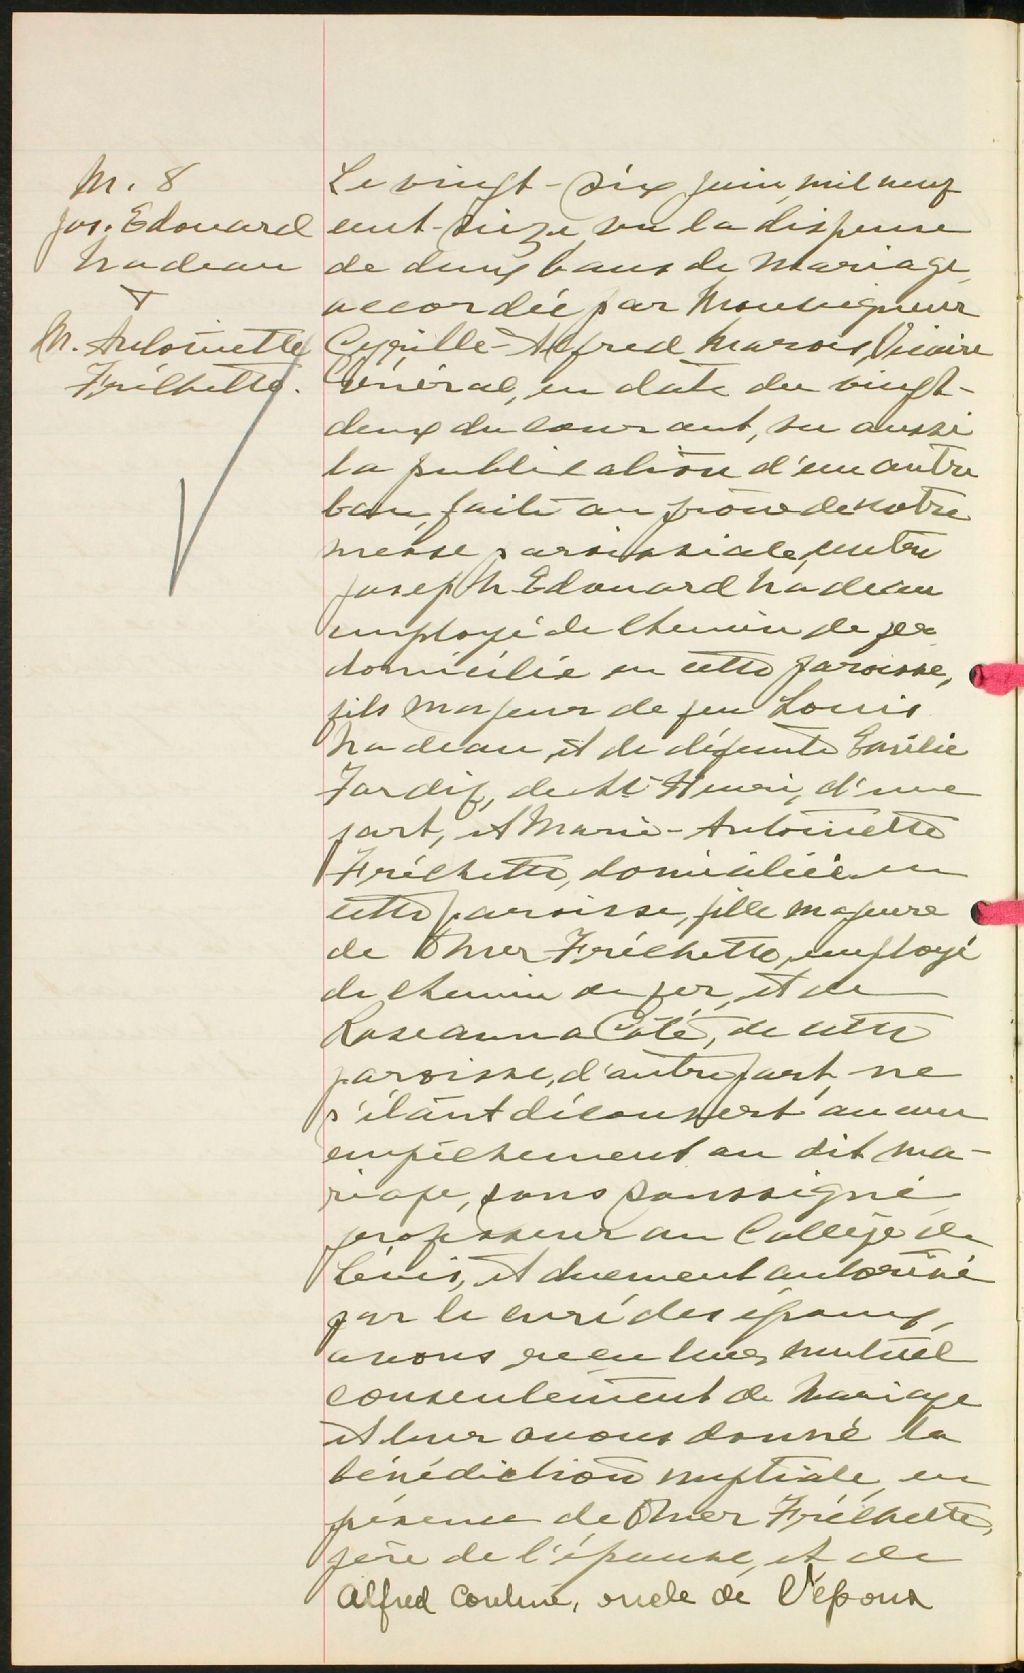 M. 8
Jos. Edouard
Nadeau
+
M. Antoinette
Fréchette.
Le vingt-six juin, mil neuf
cent-seize, vu la dispense
de deux bans de mariage,
accordée par Monseigneur
Cyrille-Alfred Marois, Vicaire
Général, en date du vingt-
deux du courant, vu aussi
la publication d'un autre
ban, faite au prône de notre
messe paroissiale, entre
Joseph Edouard Nadeau
employé de chemin de fer
domicilié en cette paroisse,
fils majeur de feu Louis
Nadeau, et de défunte Emélie
Tardif, de St Henri, d'une
part, et Marie-Antoinette
Fréchette, domiciliée en
cette paroisse, fille majeure
de Omer Fréchette, employé
de chemin de fer, et de
Roseanna Côté, de cette
paroisse, d'autre part, ne
s'étant découvert aucun
empêchement au dit ma-
riage, nous soussigné
professeur au Collège de
Lévis, et duement autorisé
par le curé des époux,
avons reçu leur mutuel
consentement de mariage
et leur avons donné la
bénédiction nuptiale, en
présence de Omer Fréchette,
père de l'épouse, et de
Alfred , oncle de l'époux